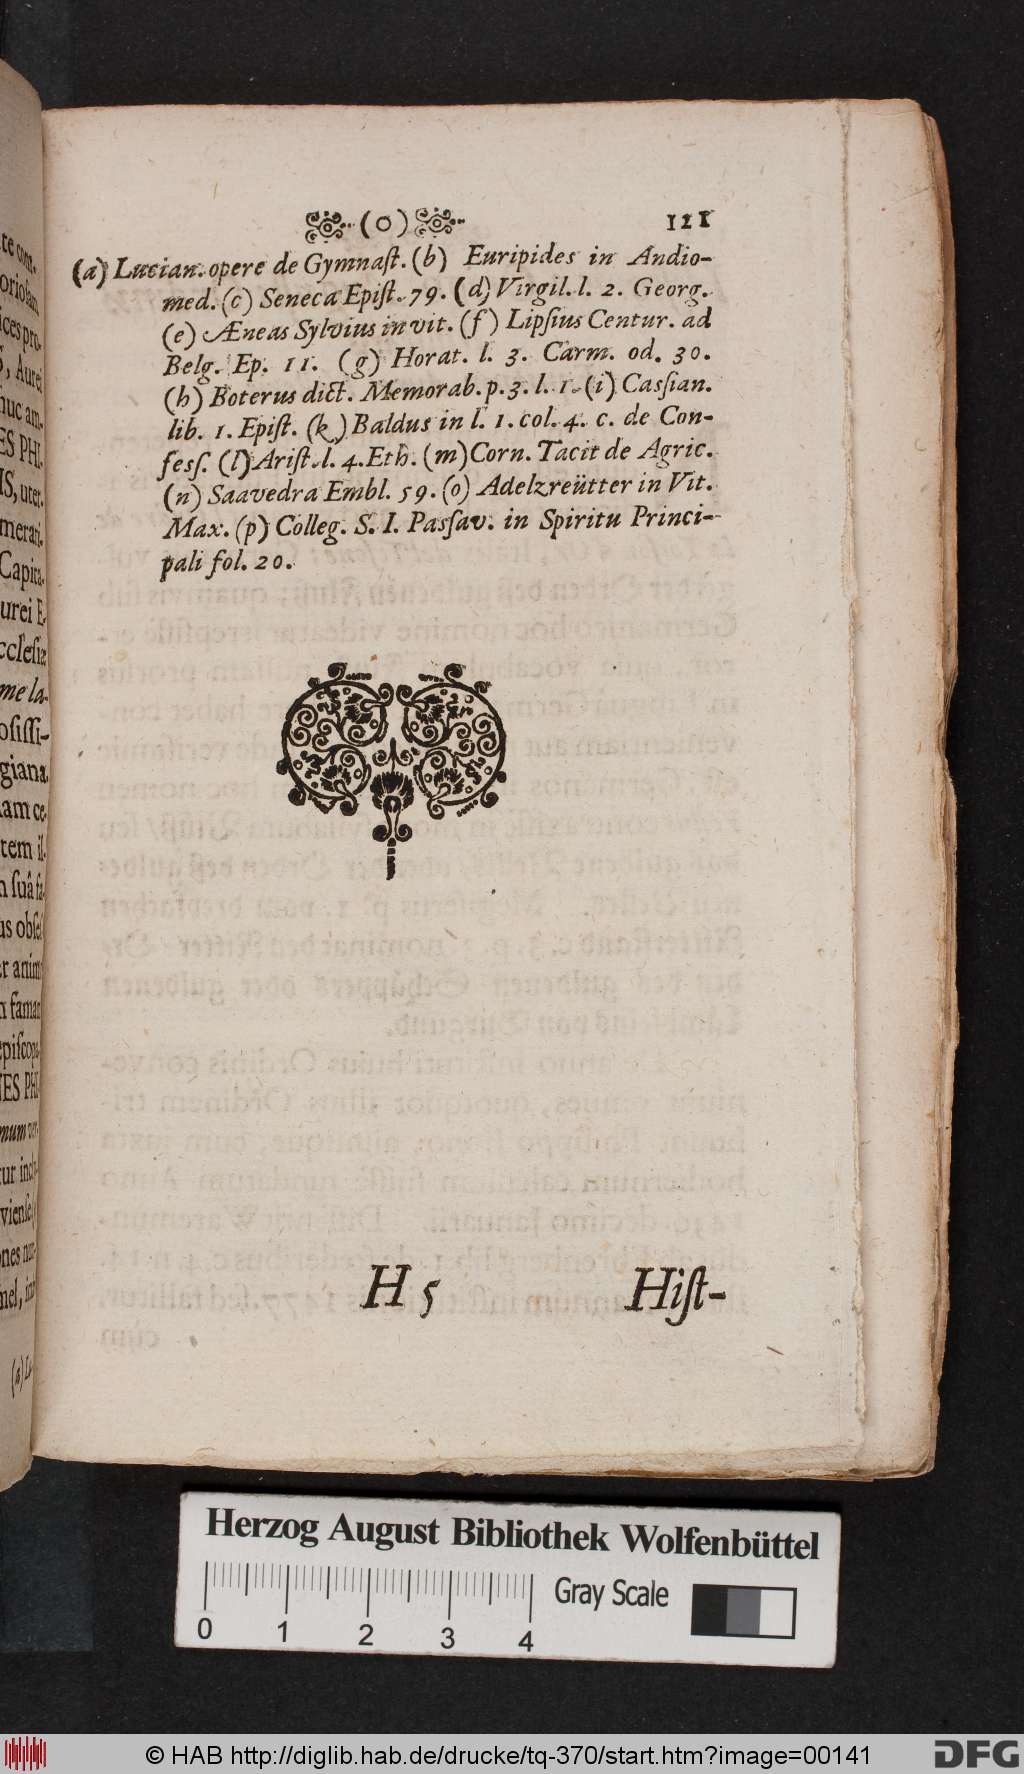 (0) 121
(a) Lucian. opere de Gymnaſt. (b) Euripides in Andio-
med. (c) Seneca Epiſt. 79. (d) Virgil. l. 2. Georg.
(e) Æneas Sylvius in vit. (f) Lipſius Centur. ad
Belg. Ep. 11. (g) Horat. l. 3. Carm. od. 30.
(h) Boterus dict. Memorab. p. 3. l. 1. (i) Caſſian.
lib. 1. Epiſt. (k) Baldus in l. 1. col. 4. c. de Con-
feſſ. (l) Ariſt. l. 4. Eth. (m) Corn. Tacit de Agric.
(n) Saavedra Embl. 59. (o) Adelzreütter in Vit.
Max. (p) Colleg. S. I. Paſſav. in Spiritu Princi-
pali fol. 20.
H 5 Hiſt-
Herzog August Bibliothek Wolfenbüttel
0 1 2 3 4 Gray Scale
© HAB http://diglib.hab.de/drucke/tq-370/start.htm?image=00141 DFG